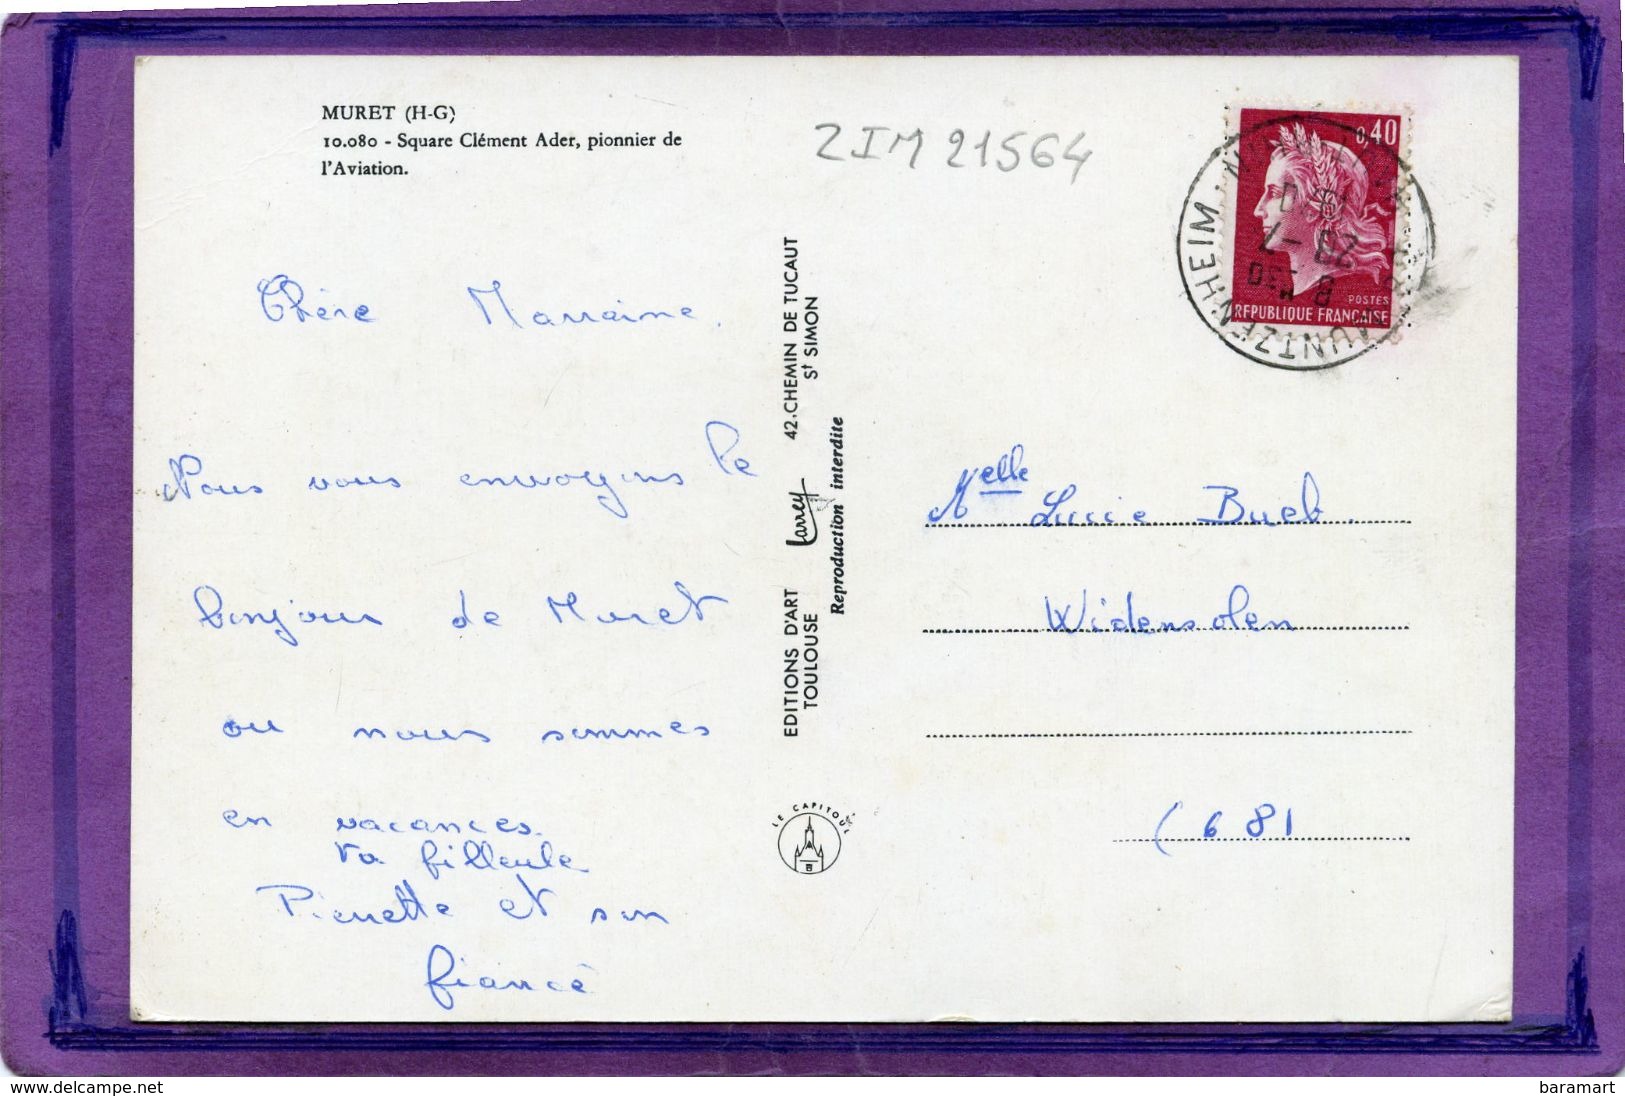 MURET (H-G)
10.080 - Square Clément Ader, pionnier de
l'Aviation.
ZIM 21564
Chère Marraine.
Nous vous envoyons le
bonjour de Muret
ou nous sommes
en vacances.
Ta filleule
Pierrette et son
fiancé
EDITIONS D'ART Larrey 42, CHEMIN DE TUCAUT
TOULOUSE St SIMON
Reproduction interdite
LE CAPITOUL
0,40
POSTES
REPUBLIQUE FRANÇAISE
KAUNTZENHEIM
Melle Lucie Bueb.
Widensolen
(681
delcampe.net
baramart